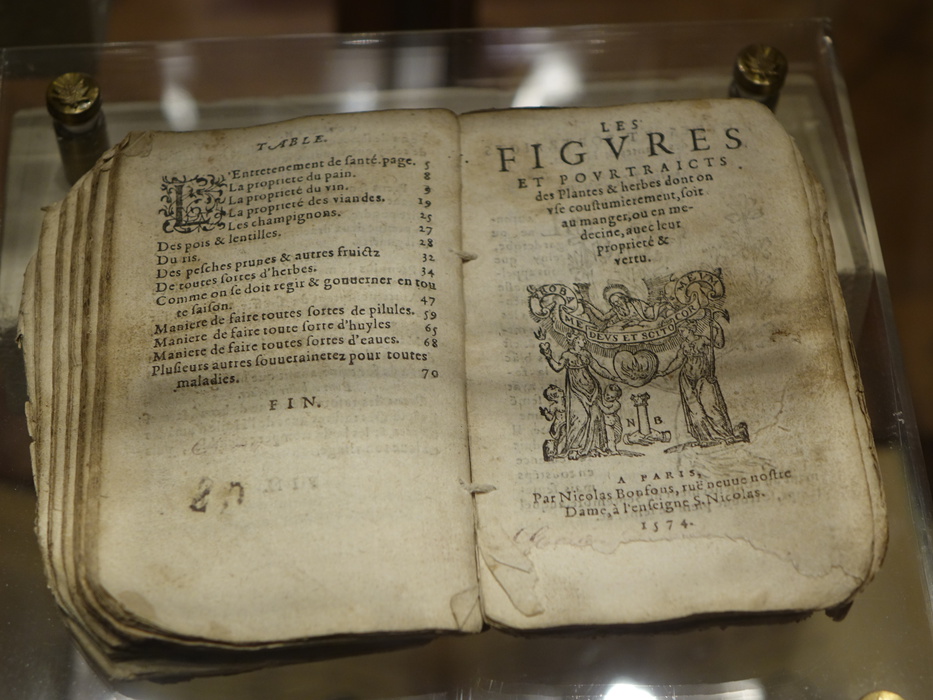 TABLE.
L'Entretenement de santé. page. 5
La proprieté du pain. 8
La proprieté du vin. 9
La proprieté des viandes. 19
Les champignons. 25
Des pois & lentilles. 27
Du ris. 28
Des pesches prunes & autres fruictz 32
De toutes sortes d'herbes. 34
Comme on se doit regir & gouuerner en tou
te saison. 47
Maniere de faire toutes sortes de pilules. 59
Maniere de faire toute sorte d'huyles 65
Maniere de faire toutes sortes d'eaues. 68
Plusieurs autres souuerainetez pour toutes
maladies. 70
FIN.
LES
FIGVRES
ET POVRTRAICTS
des Plantes & herbes dont on
vse coustumierement, soit
au manger, ou en me-
decine, auec leur
proprieté &
vertu.
DEVS ET SCITO COR MEVM
N B
A PARIS,
Par Nicolas Bonfons, ruë neuue nostre
Dame, à l'enseigne S. Nicolas.
1574.